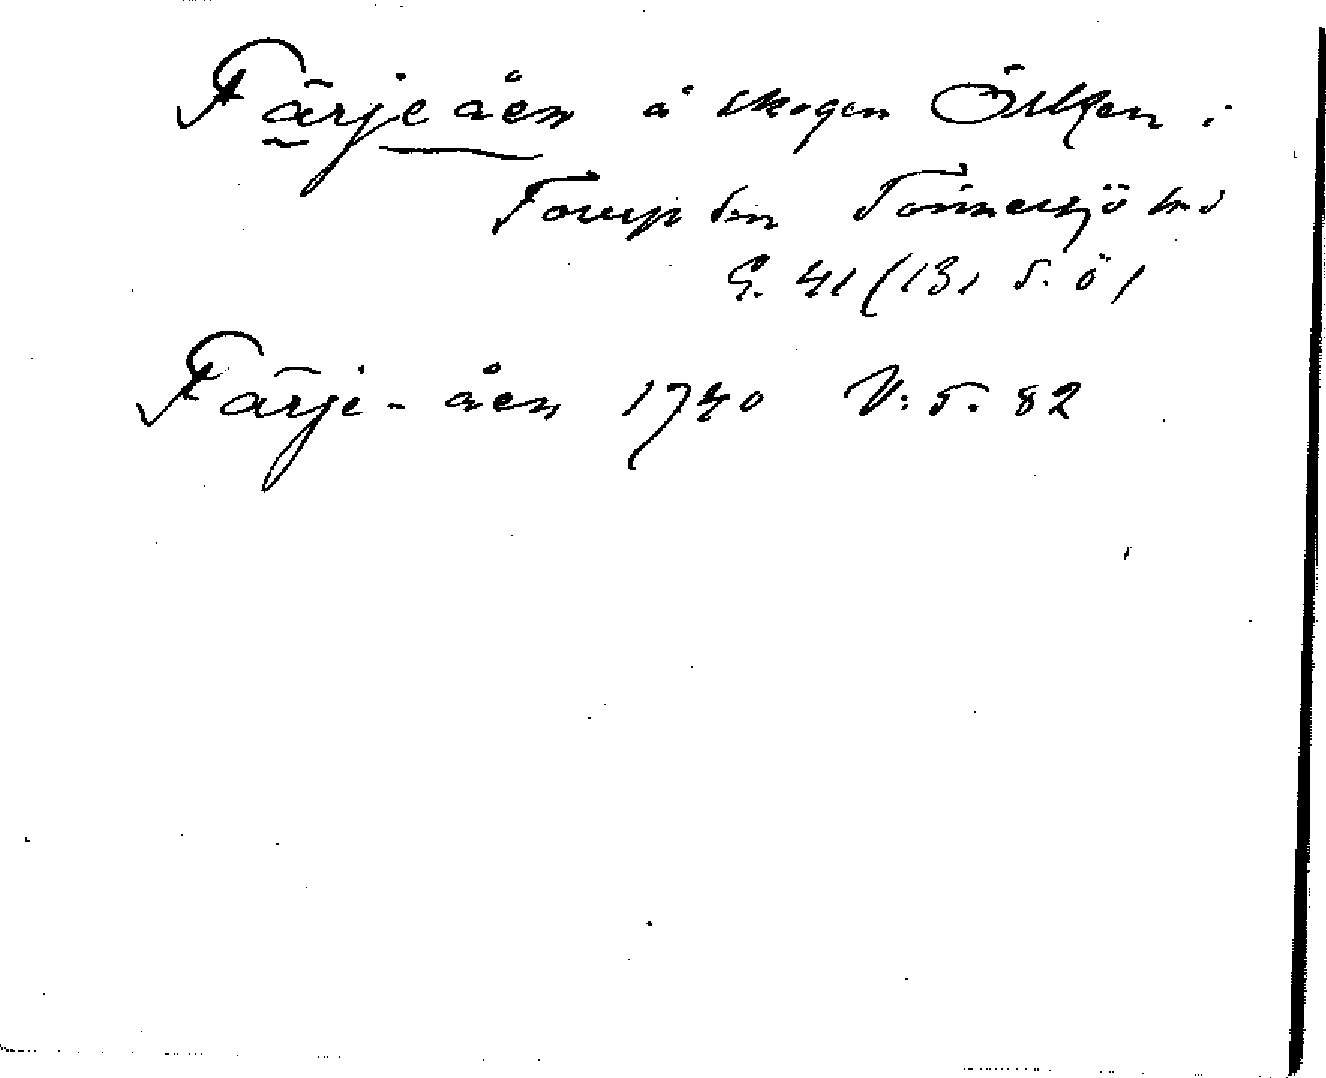 Färjeåen å skogen Örken i
Torup sn Tönnersjö hd
G. 41 (131 S. Ö)
Färje-åen 1740 V: S. 82